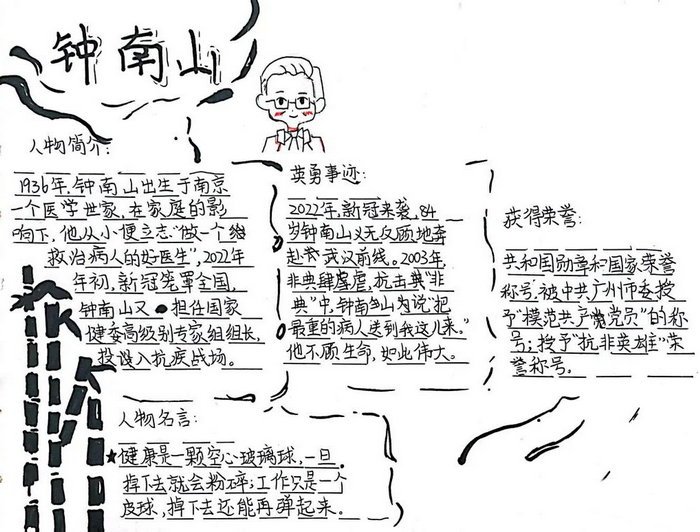 钟南山
人物简介:
1936年,钟南山出生于南京
一个医学世家,在家庭的影
响下,他从小便立志"做一个能
救治病人的好医生",2022年
年初,新冠笼罩全国,
钟南山又担任国家
健委高级别专家组组长,
投入抗疫战场。
英勇事迹:
2022年,新冠来袭,84
岁钟南山义无反顾地奔
赴武汉前线。2003年,
非典肆虐,抗击"非
典"中,钟南山为说"把
最重的病人送到我这儿来。"
他不顾生命,如此伟大。
获得荣誉:
共和国勋章和国家荣誉
称号;被中共广州市委授
予"模范共产党员"的称
号;授予"抗非英雄"荣
誉称号。
人物名言:
★健康是一颗空心玻璃球,一旦
掉下去就会粉碎;工作只是一个
皮球,掉下去还能再弹起来。